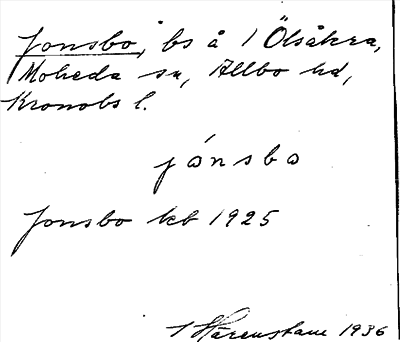 Jonsbo, bs å 1 Ölsåkra,
Moheda sn, Allbo hd,
Kronobs l.
jònsbo
Jonsbo kb 1925
1936